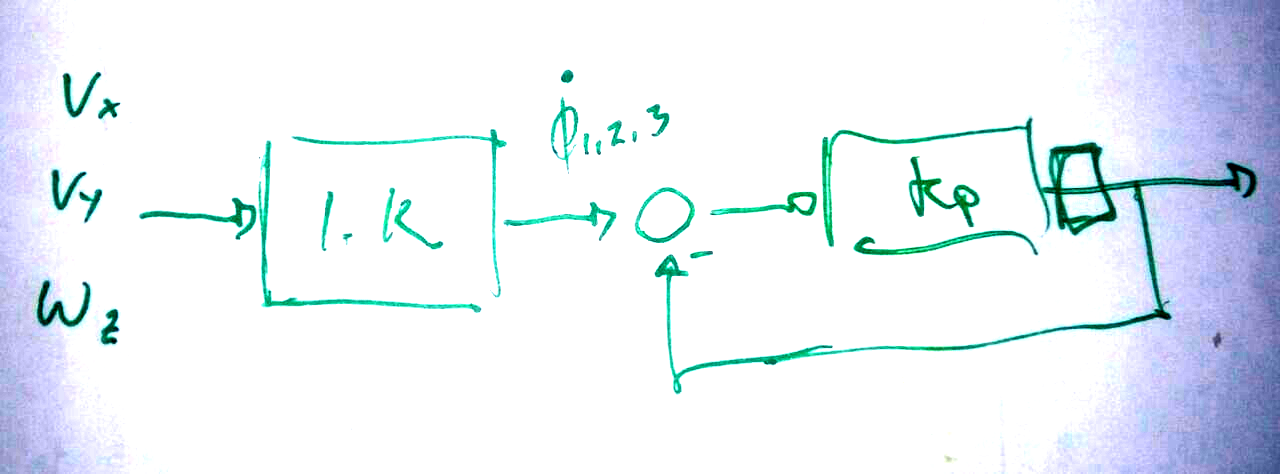 Vx
Vy
Wz
I.K
φ̇1,2,3
-
kp